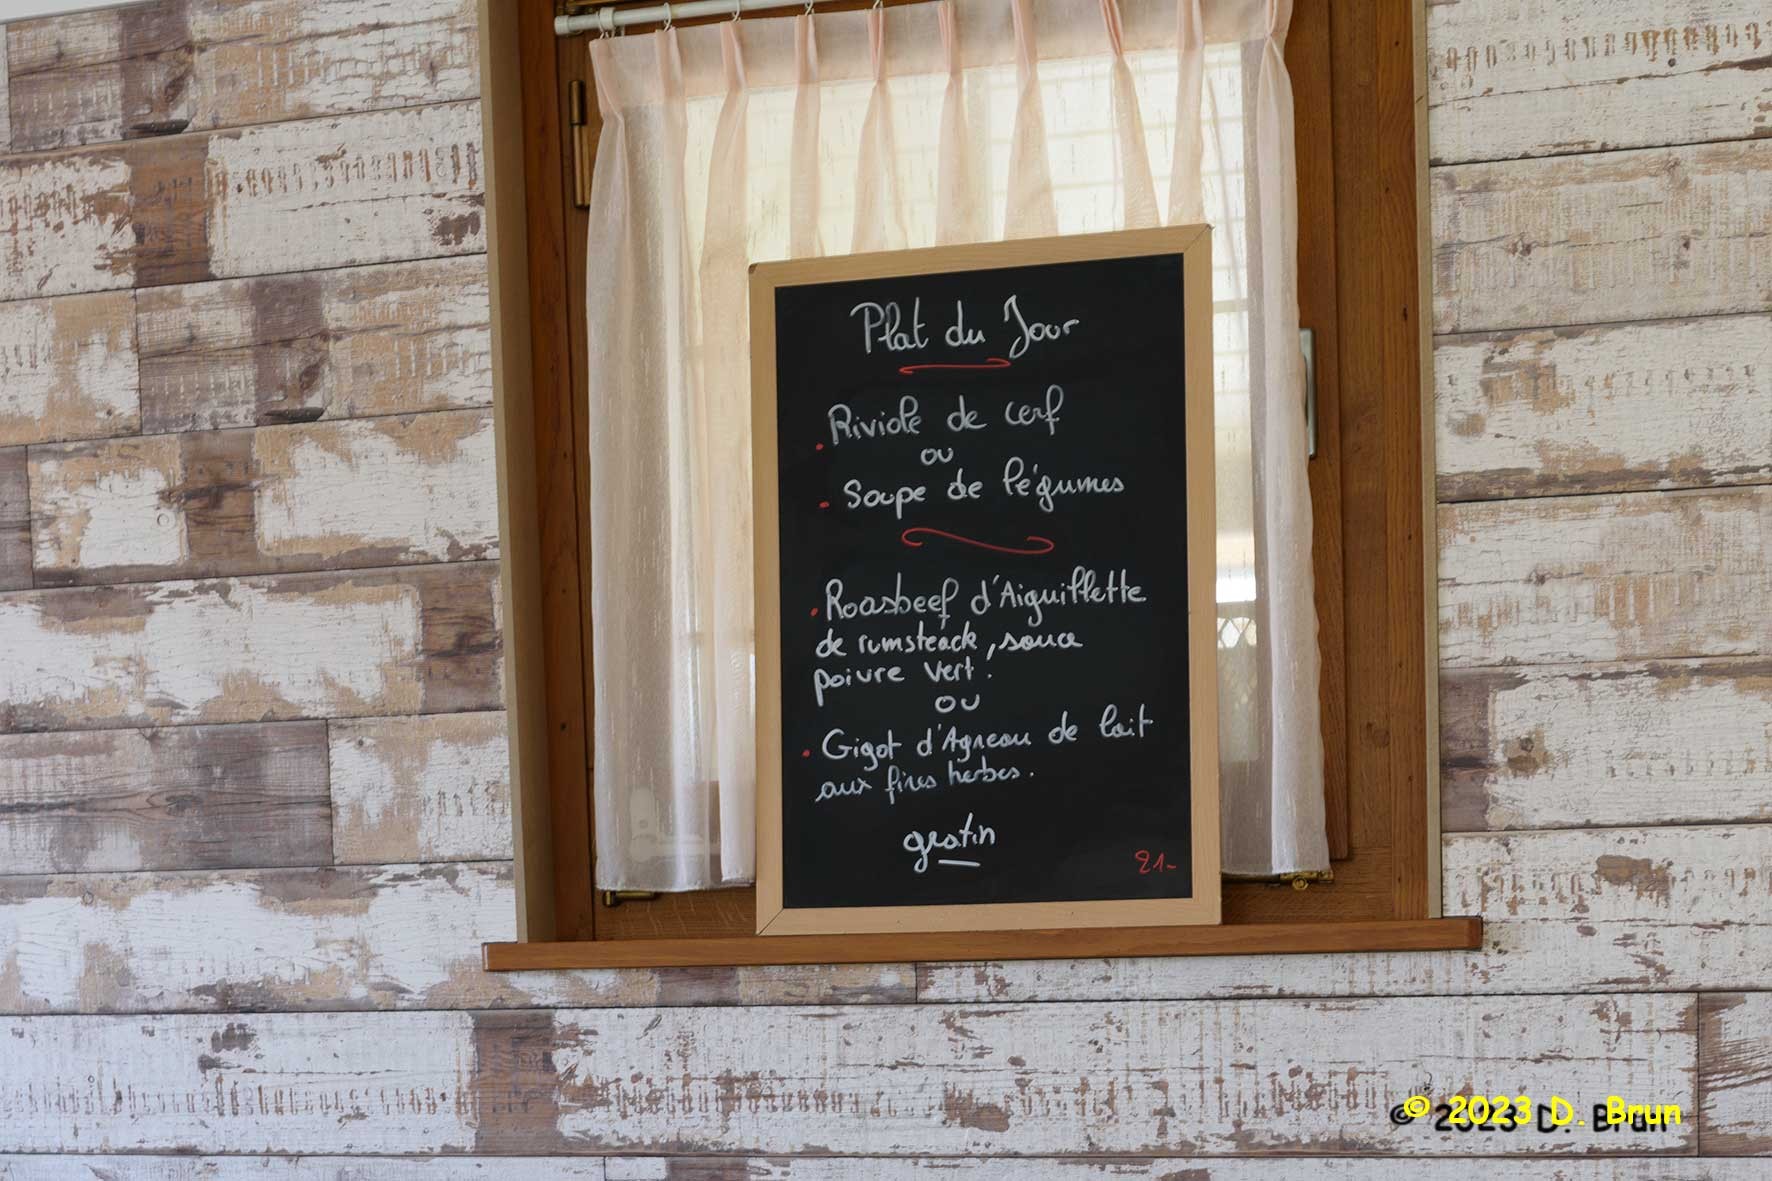 Plat du Jour
Riviole de cerf
ou
Soupe de légumes
Roasbeef d'Aiguillette
de rumsteack, sauce
poivre vert.
OU
Gigot d'Agneau de lait
aux fines herbes.
gratin
21-
© 2023 D. Brun